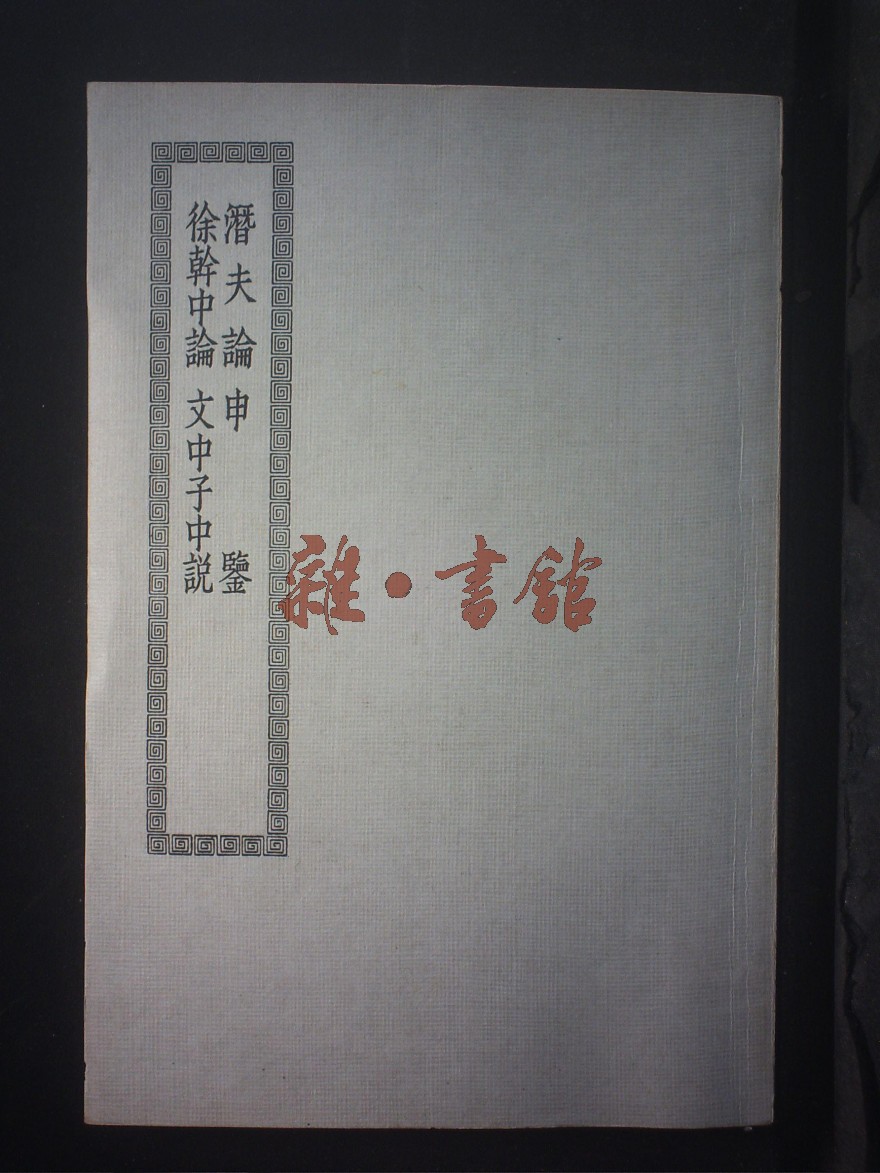 潛夫論申鑒
徐幹中論 文中子中説
雜·書館